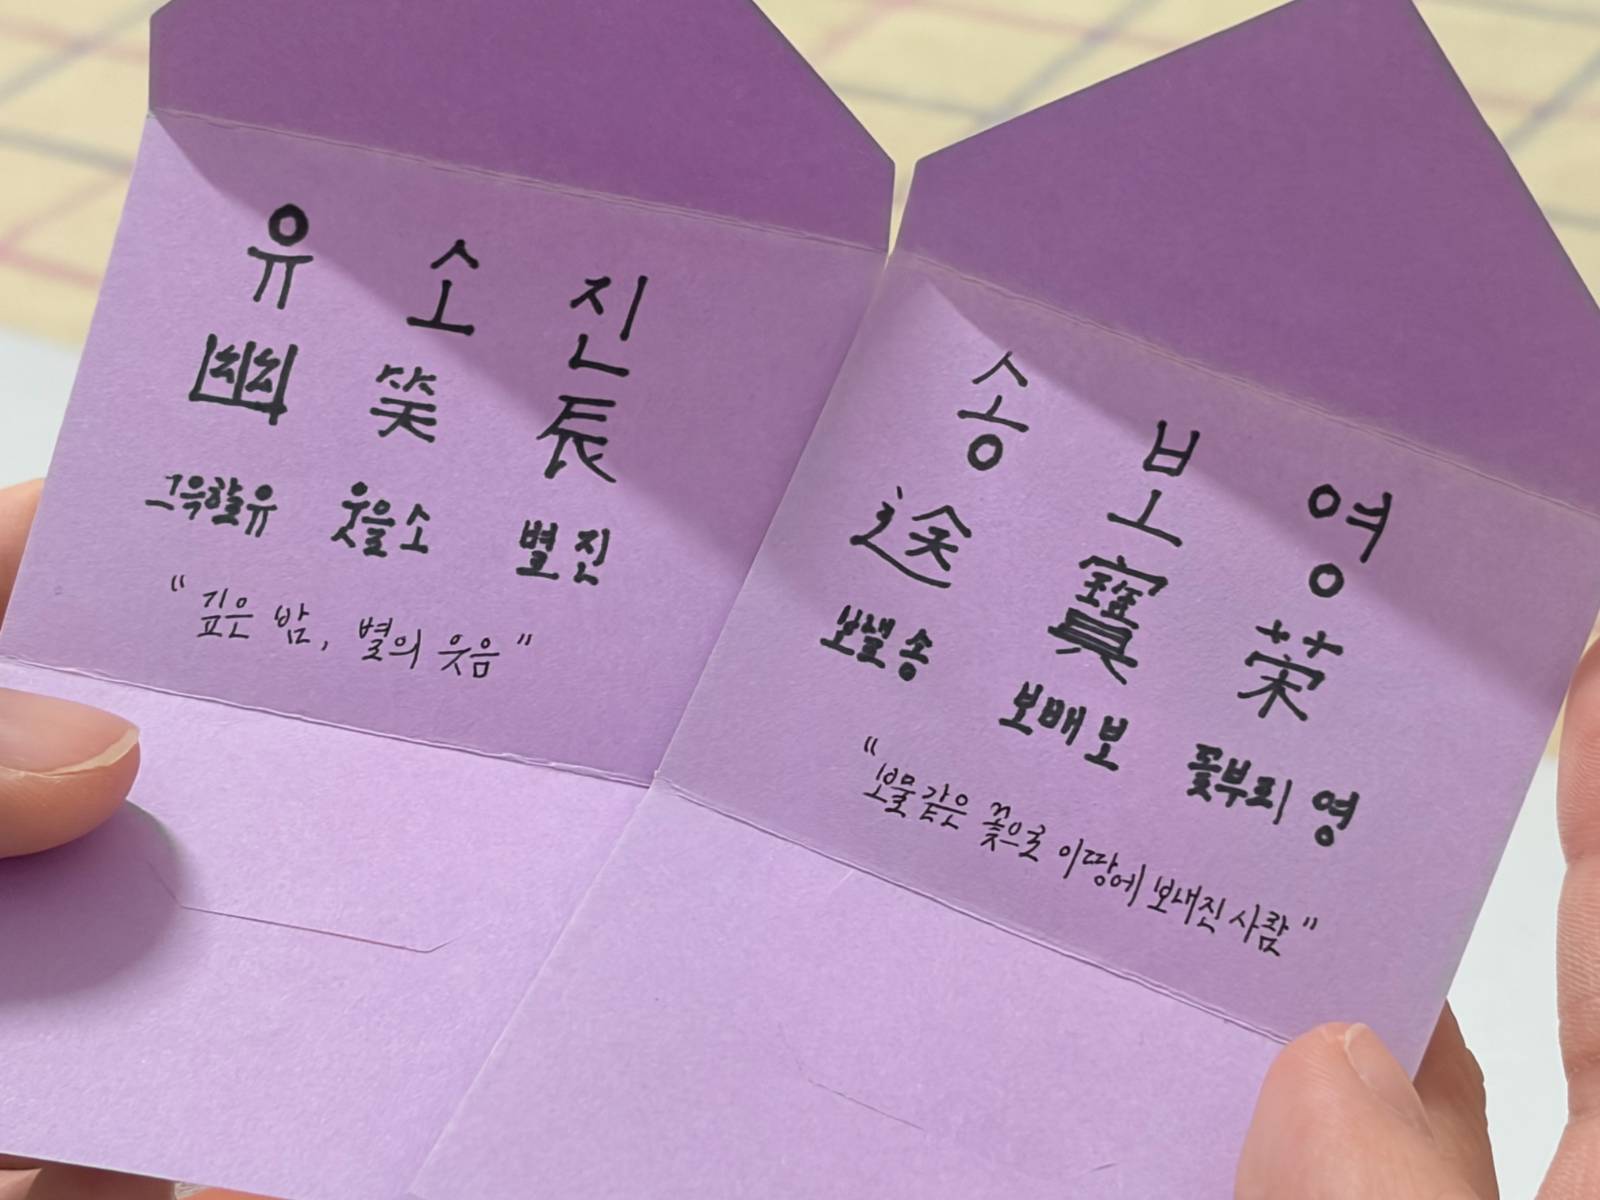 유 소 진
幽 笑 辰
그윽할 유 웃을 소 별 진
“깊은 밤, 별의 웃음”
송 보 영
送 寶 荣
보낼 송 보배 보 꽃부리 영
“보물같은 꽃으로 이땅에 보내진 사람”